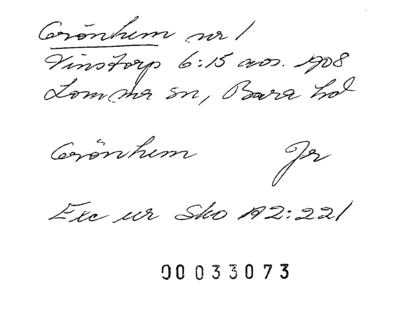 Grönhem nr 1
Vinstorp 6:15 avs. 1908
Lomma sn, Bara hd
Grönhem Jr
Exc ur Sko A2:221
00033073